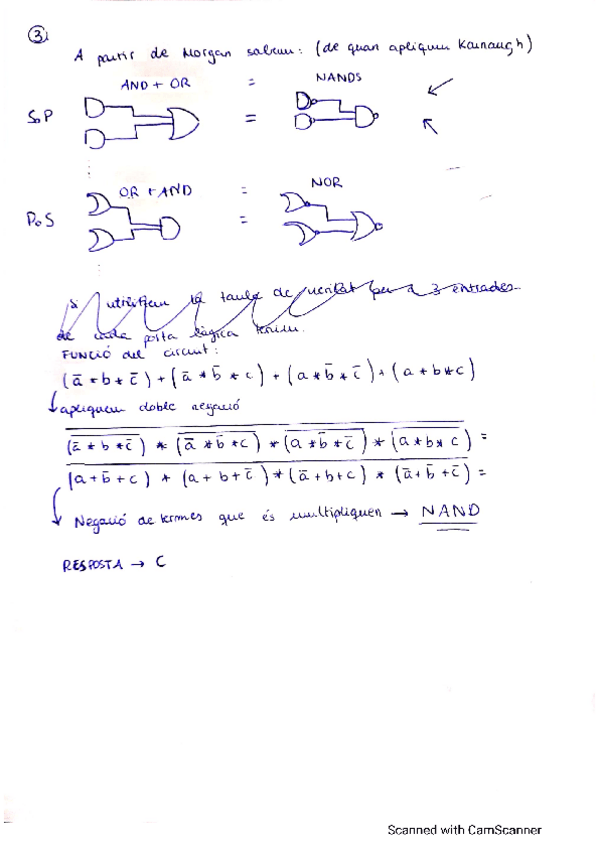 ③
A partir de Morgan sabem: (de quan apliquem Karnaugh)
AND + OR = NANDS
SoP =
OR + AND = NOR
PoS =
Si utilitzem la taula de veritat per a 3 entrades
de cada porta lògica tenim.
FUNCIÓ del circuit:
(ā * b * c̄) + (ā * b̄ * c) + (a * b̄ * c̄) + (a * b * c)
↓ apliquem doble negació
(ā * b * c̄) * (ā * b̄ * c) * (a * b̄ * c̄) * (a * b * c) =
(a + b̄ + c) * (a + b + c̄) * (ā + b + c) * (ā + b̄ + c̄) =
↓ Negació de termes que és multipliquen → NAND
RESPOSTA → C
Scanned with CamScanner